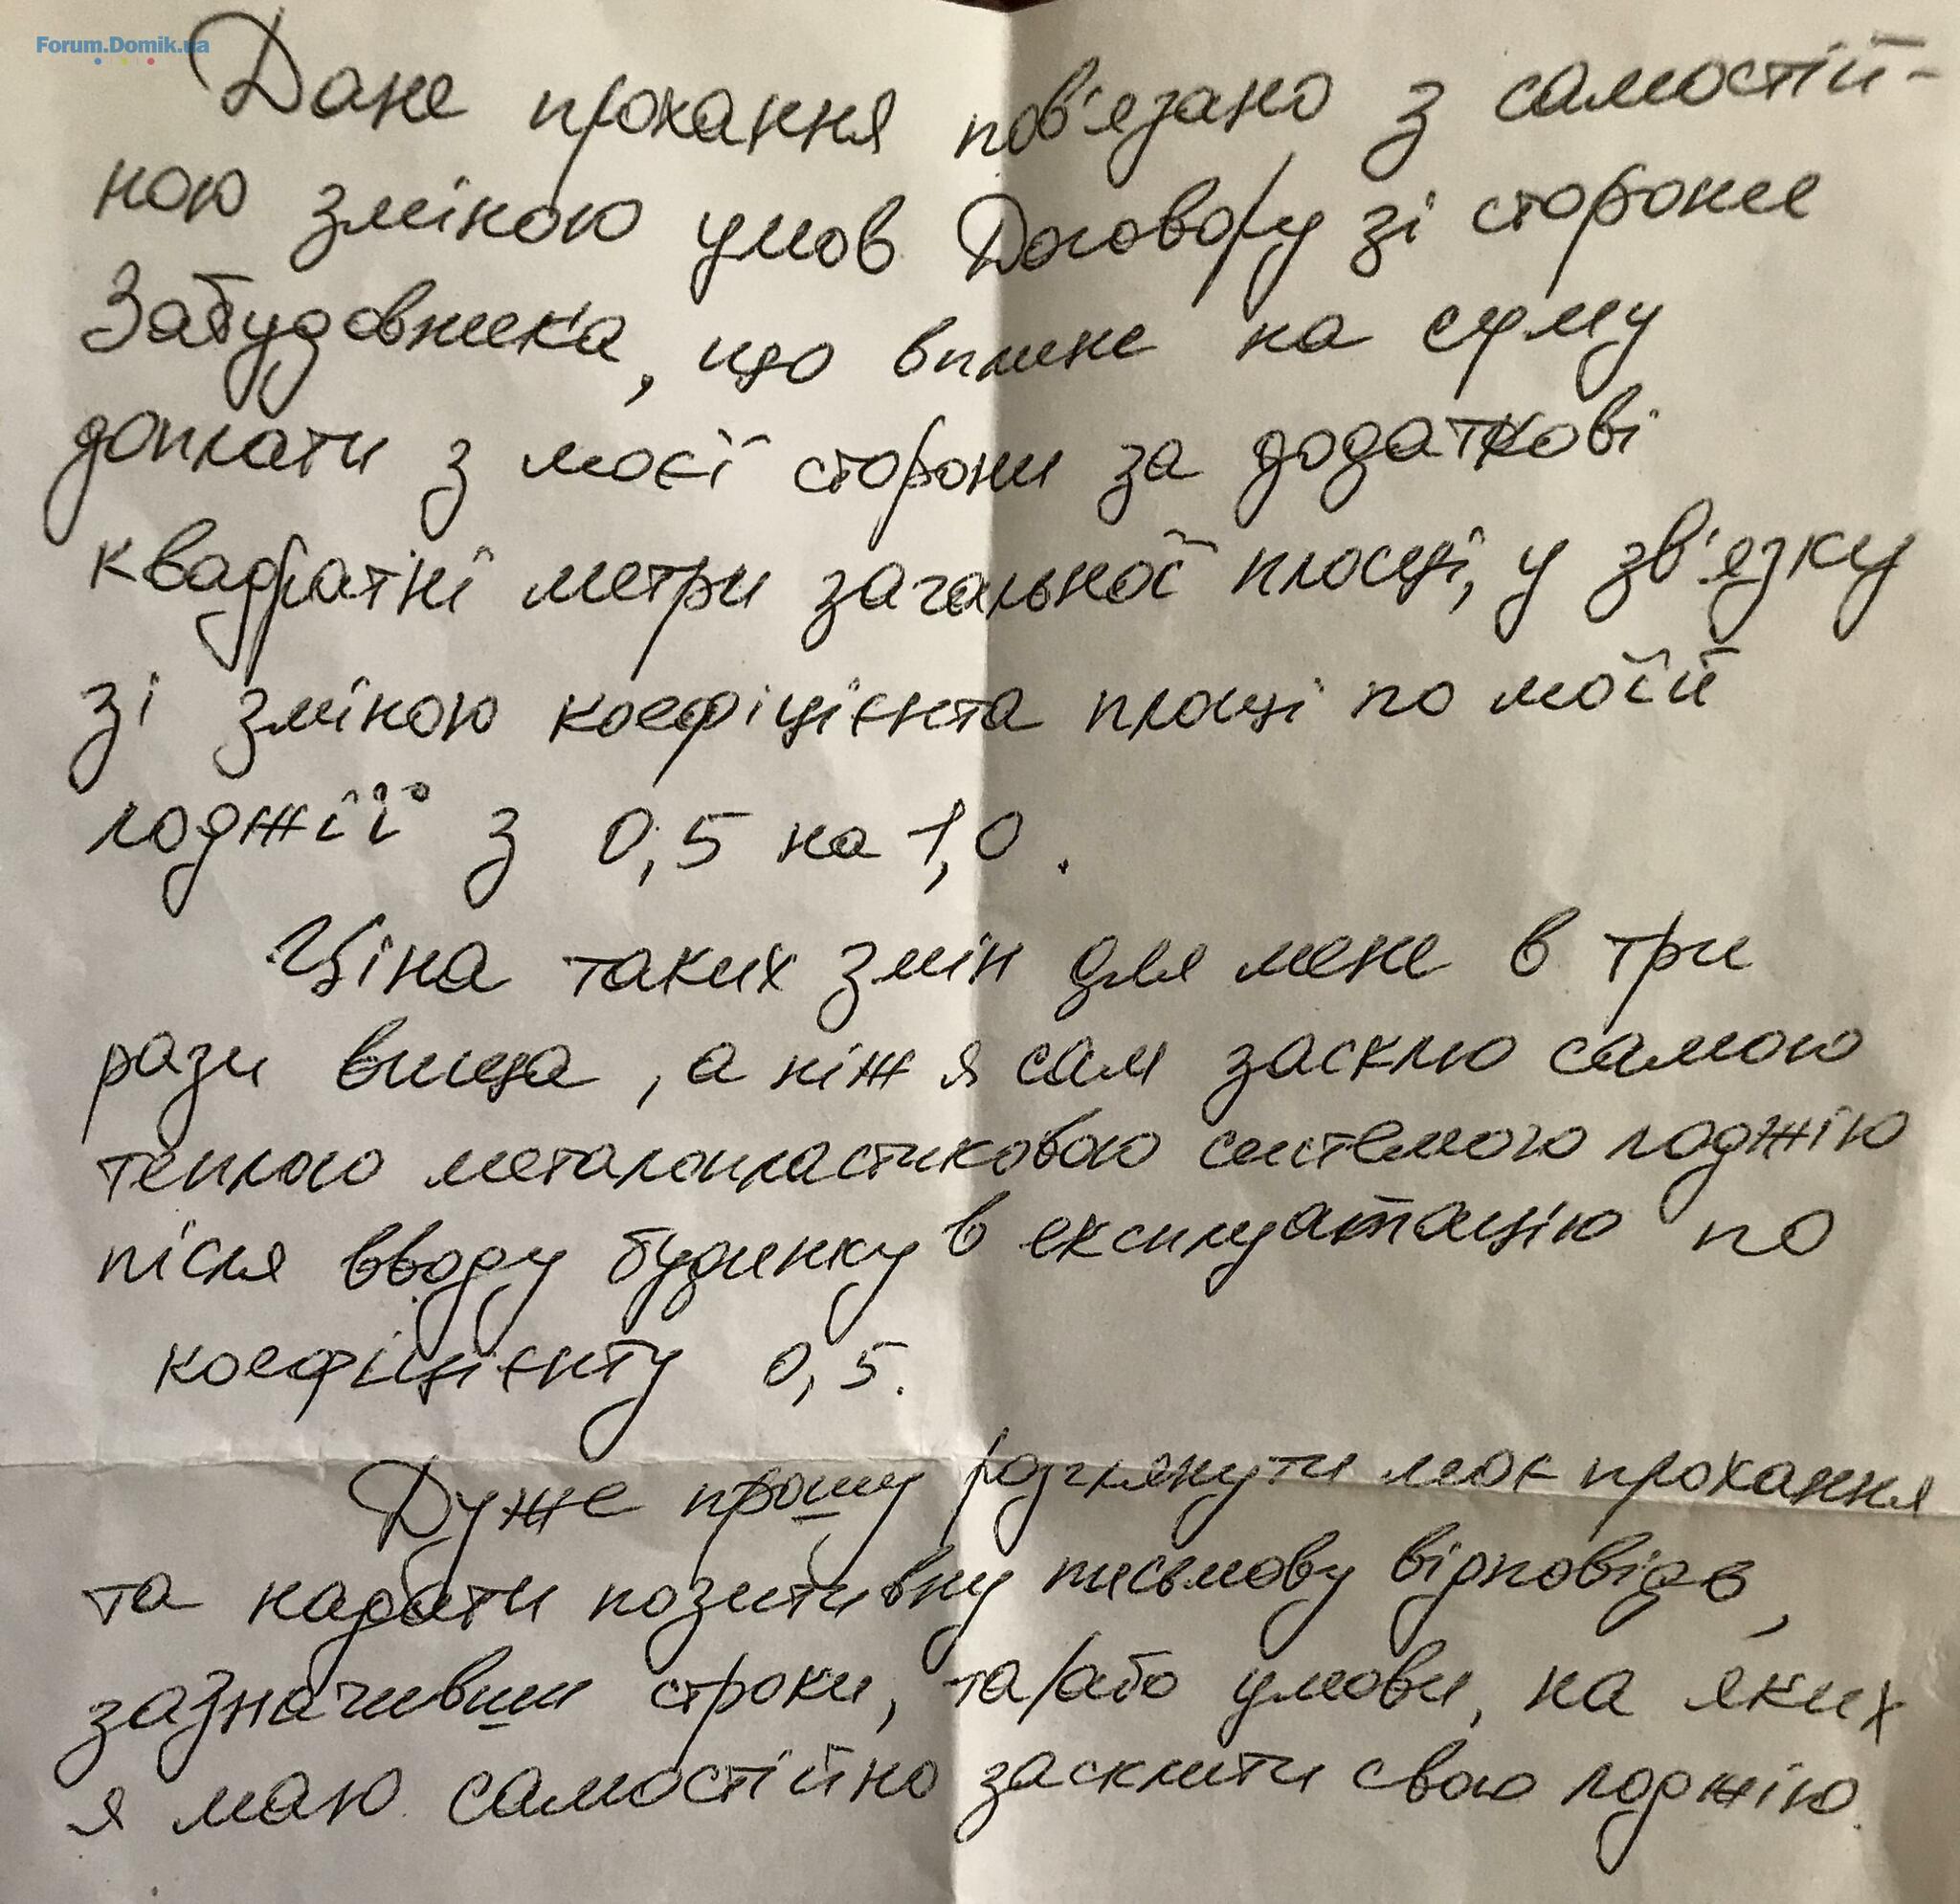 Forum.Domik.ua
Дане прохання пов'язано з самостій-
ною зміною умов Договору зі сторони
Забудовника, що вплине на суму
доплати з моєї сторони за додаткові
квадратні метри загальної площі, у зв'язку
зі зміною коефіцієнта площі по моїй
лоджії з 0,5 на 1,0.
Ціна таких змін для мене в три
рази вища, а ніж я сам засклю самою
теплою металопластиковою системою лоджію
після вводу будинку в експлуатацію по
коефіцієнту 0,5.
Дуже прошу розглянути моє прохання
та надати позитивну письмову відповідь,
зазначивши строки, та/або умови, на яких
я маю самостійно засклити свою лоджію.